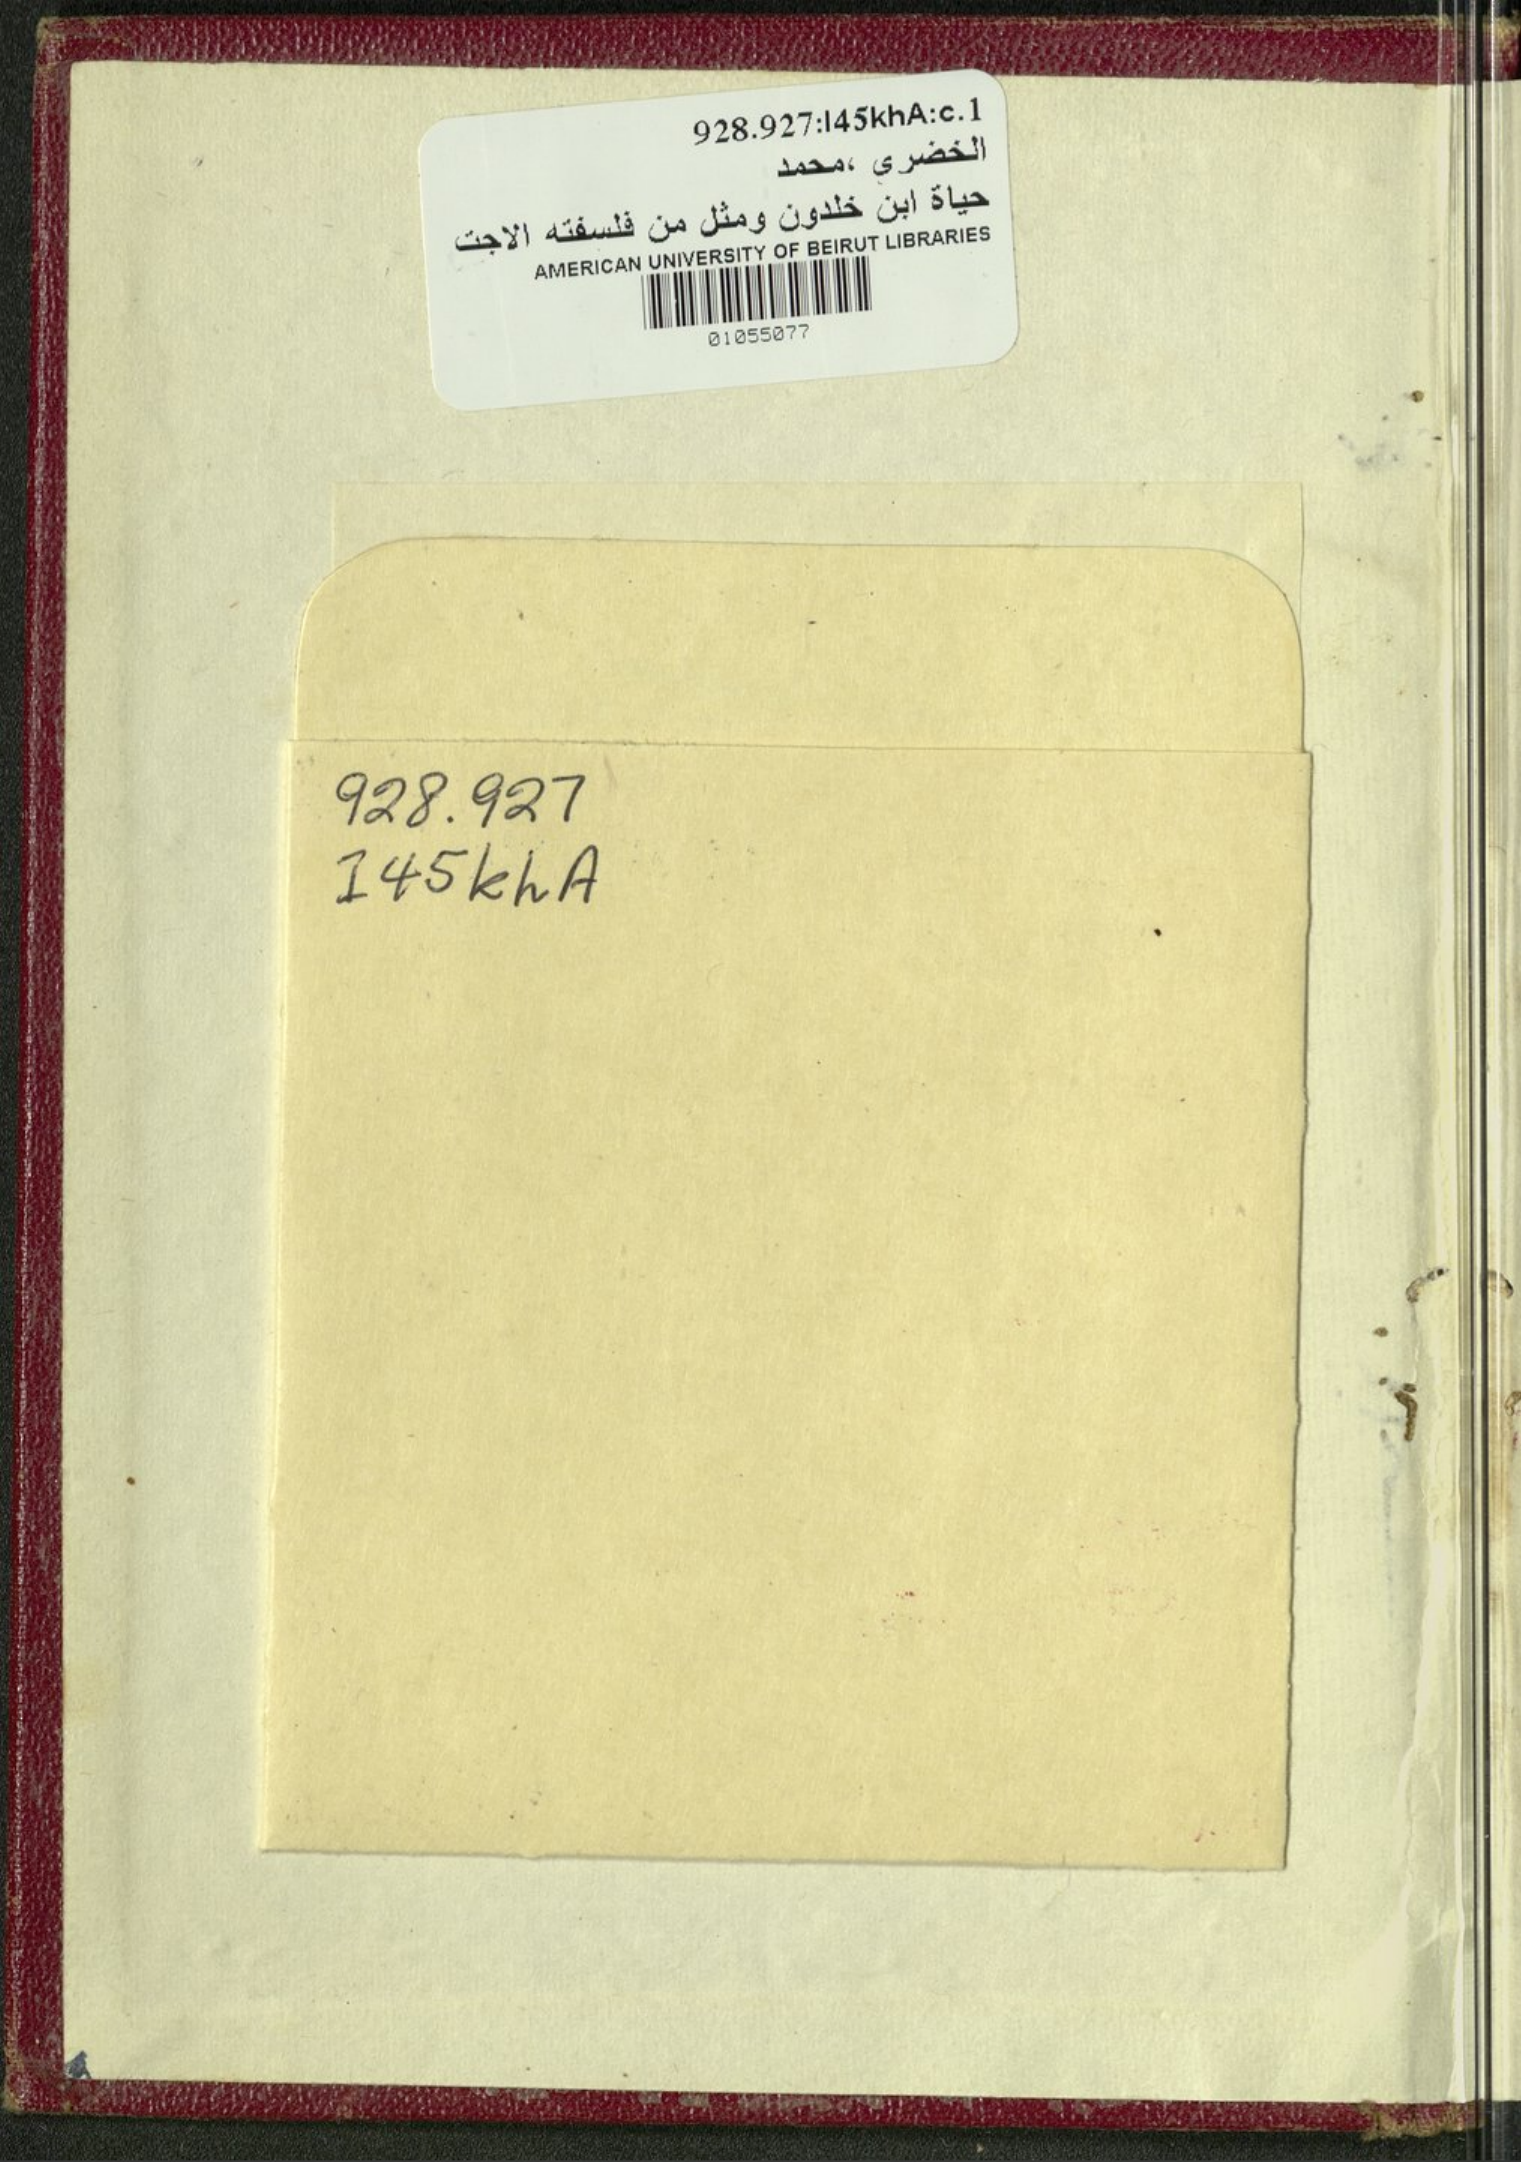 928.927:I45khA:c.1
الخضري ،محمد
حياة ابن خلدون ومثل من فلسفته الاجت
AMERICAN UNIVERSITY OF BEIRUT LIBRARIES
01055077
928.927
I45khA